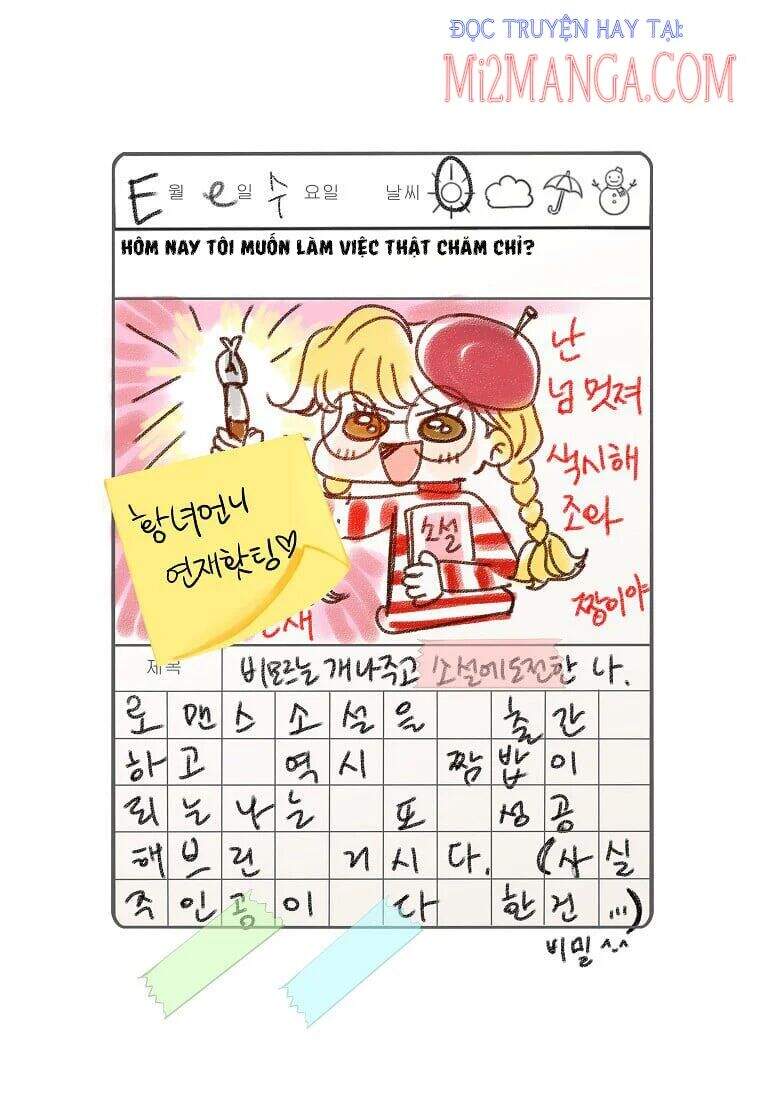 ĐỌC TRUYỆN HAY TẠI:
MI2MANGA.COM
E월 e일 수요일 날씨
HÔM NAY TÔI MUỐN LÀM VIỆC THẬT CHĂM CHỈ?
난
넘 멋져
섹시해
조와
짱이야
소설
황녀언니
연재핫팅♡
제목
비모르는 개나주고 소설에도전한 나.
로맨스소설을 출간
하고 역시 짬밥이
되는나는 또 성공
해브린 거시다. (사실
주인공이 다 한건...)
비밀^^